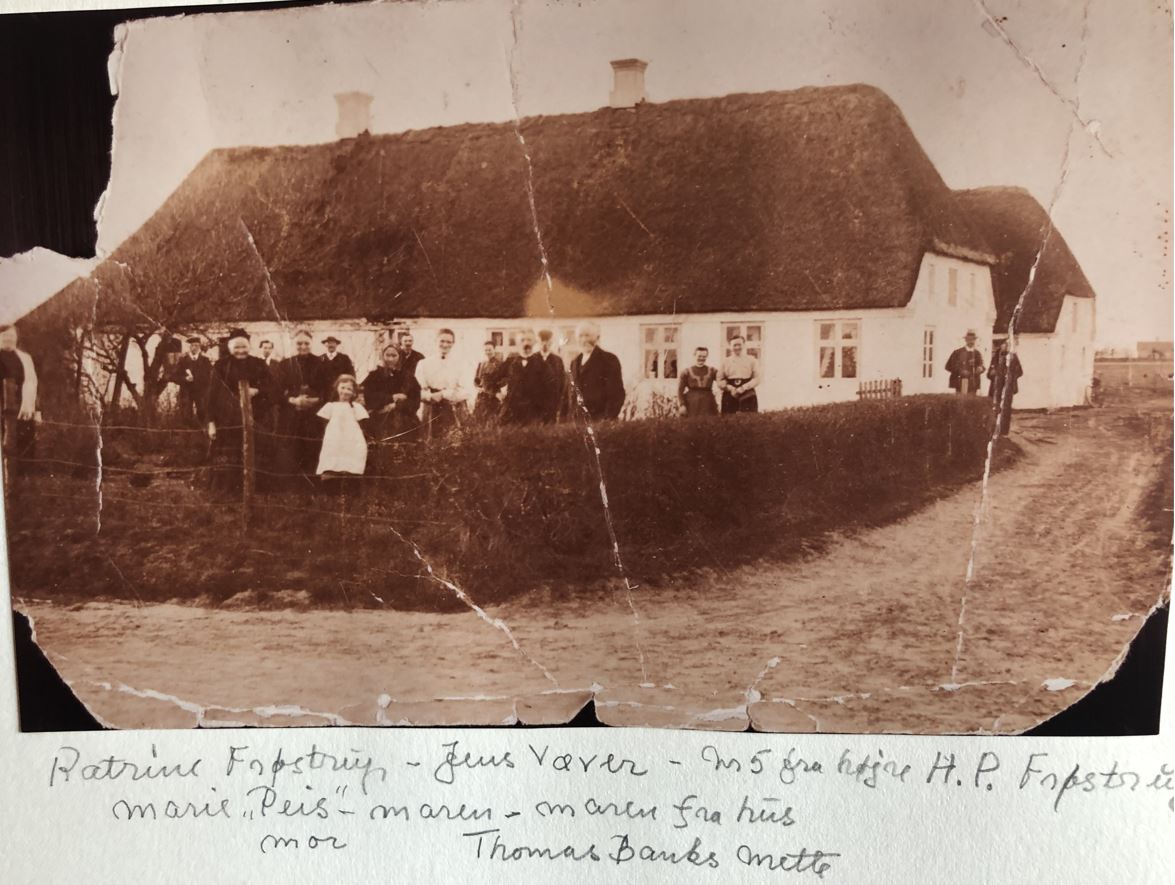 Katrine Frøstrup - Jens Væver - nr 5 fra højre H.P. Frøstru
marie „Peis"- maren - maren fra hus
mor Thomas Banks Mette